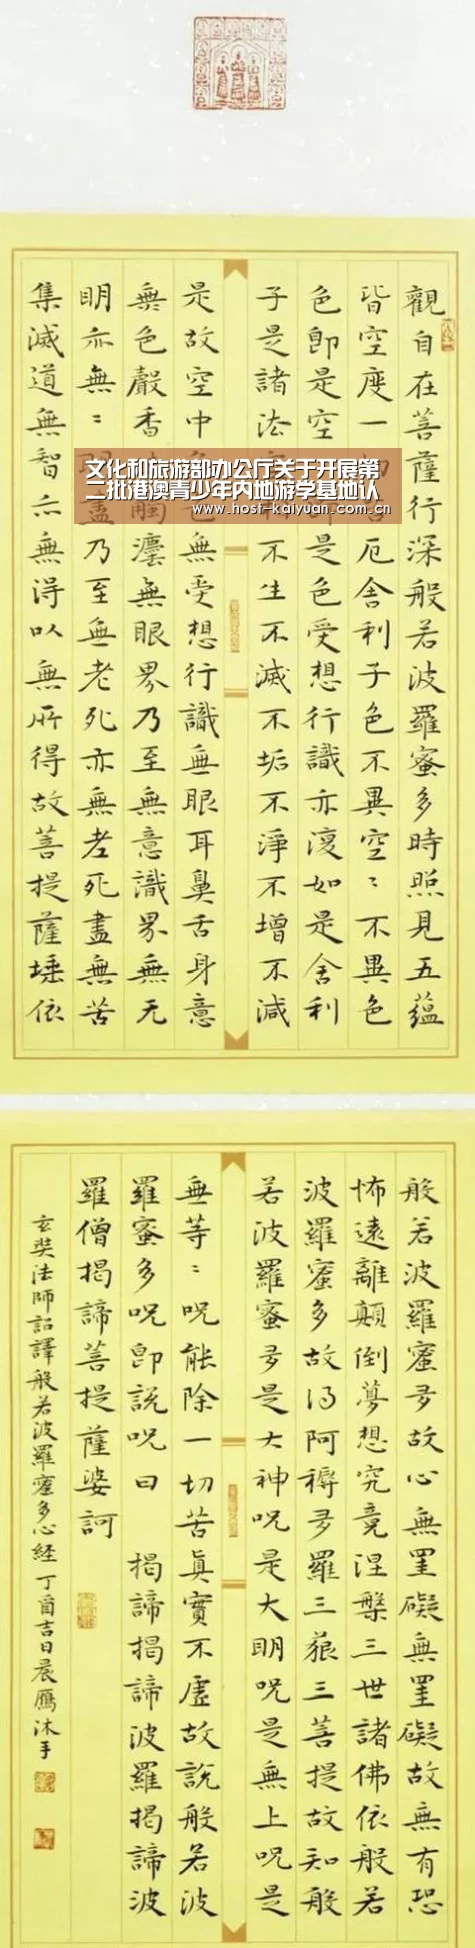 文化和旅游部办公厅关于开展第
二批港澳青少年内地游学基地认
www.host-kaiyuan.com.cn
觀自在菩薩行深般若波羅蜜多時照見五蘊
皆空度一切苦厄舍利子色不異空〻不異色
色即是空是色受想行識亦復如是舍利
子是諸法不生不滅不垢不淨不增不減
是故空中無受想行識無眼耳鼻舌身意
無色聲香觸灋無眼界乃至無意識界無无
明亦無〻明盡乃至無老死亦無老死盡無苦
集滅道無智亦無得以無所得故菩提薩埵依
般若波羅蜜多故心無罣礙無罣礙故無有恐
怖遠離顛倒夢想究竟涅槃三世諸佛依般若
波羅蜜多故得阿耨多羅三藐三菩提故知般
若波羅蜜多是大神呪是大明呪是無上呪是
無等〻呪能除一切苦真實不虛故說般若波
羅蜜多呪即說呪曰 揭諦揭諦波羅揭諦波
羅僧揭諦菩提薩婆訶
玄奘法師詔譯般若波羅蜜多心經 丁酉吉日晨雁沐手